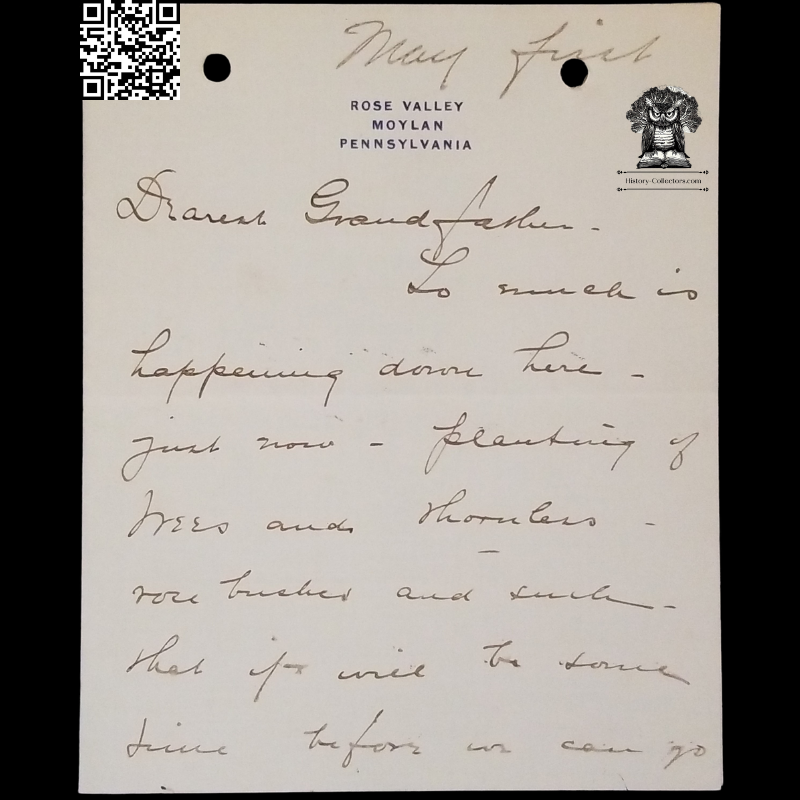 May first
ROSE VALLEY
MOYLAN
PENNSYLVANIA
History-Collectors.com
Dearest Grandfather -
So much is
happening down here -
just now - planting of
trees and thornless -
rose bushes and such -
that it will be some
time before we can go